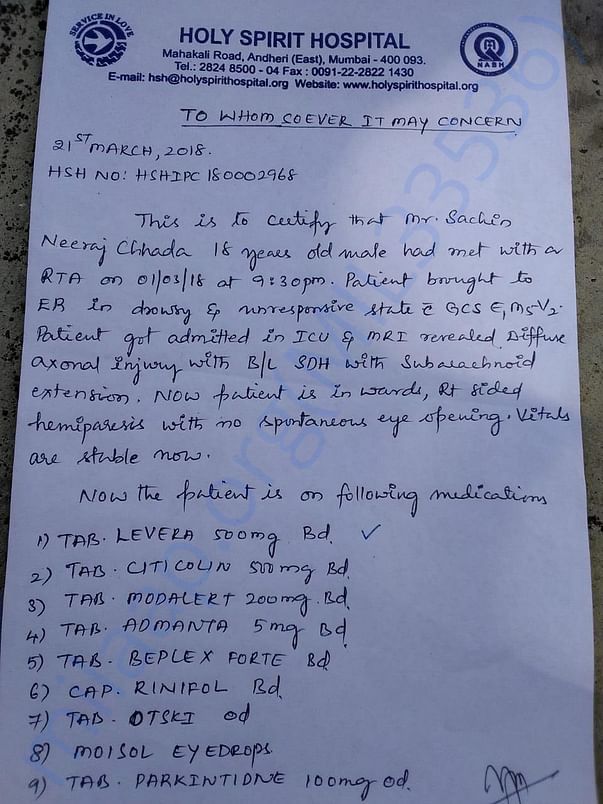 SERVICE IN LOVE
HOLY SPIRIT HOSPITAL
Mahakali Road, Andheri (East), Mumbai - 400 093.
Tel.: 2824 8500 - 04 Fax : 0091-22-2822 1430
E-mail: hsh@holyspirithospital.org Website: www.holyspirithospital.org
NABH
TO WHOM SOEVER IT MAY CONCERN
21ST MARCH, 2018.
HSH NO: HSHIPC 180002968
This is to certify that Mr. Sachin
Neeraj Chhada 18 years old male had met with a
RTA on 01/03/18 at 9:30pm. Patient brought to
ER in drowsy & unresponsive state c̄ GCS E1M5V2.
Patient got admitted in ICU & MRI revealed Diffuse
axonal injury with B/L SDH with Subarachnoid
extension. Now patient is in wards, Rt sided
hemiparesis with no spontaneous eye opening. Vitals
are stable now.
Now the patient is on following medications
1) TAB. LEVERA 500mg Bd. ✓
2) TAB. CITICOLIN 500mg Bd.
3) TAB. MODALERT 200mg. Bd.
4) TAB. ADMANTA 5mg Bd.
5) TAB. BEPLEX FORTE Bd.
6) CAP. RINIFOL Bd.
7) TAB. OTSKI od
8) MOISOL EYEDROPS.
9) TAB. PARKINTIDNE 100mg od.